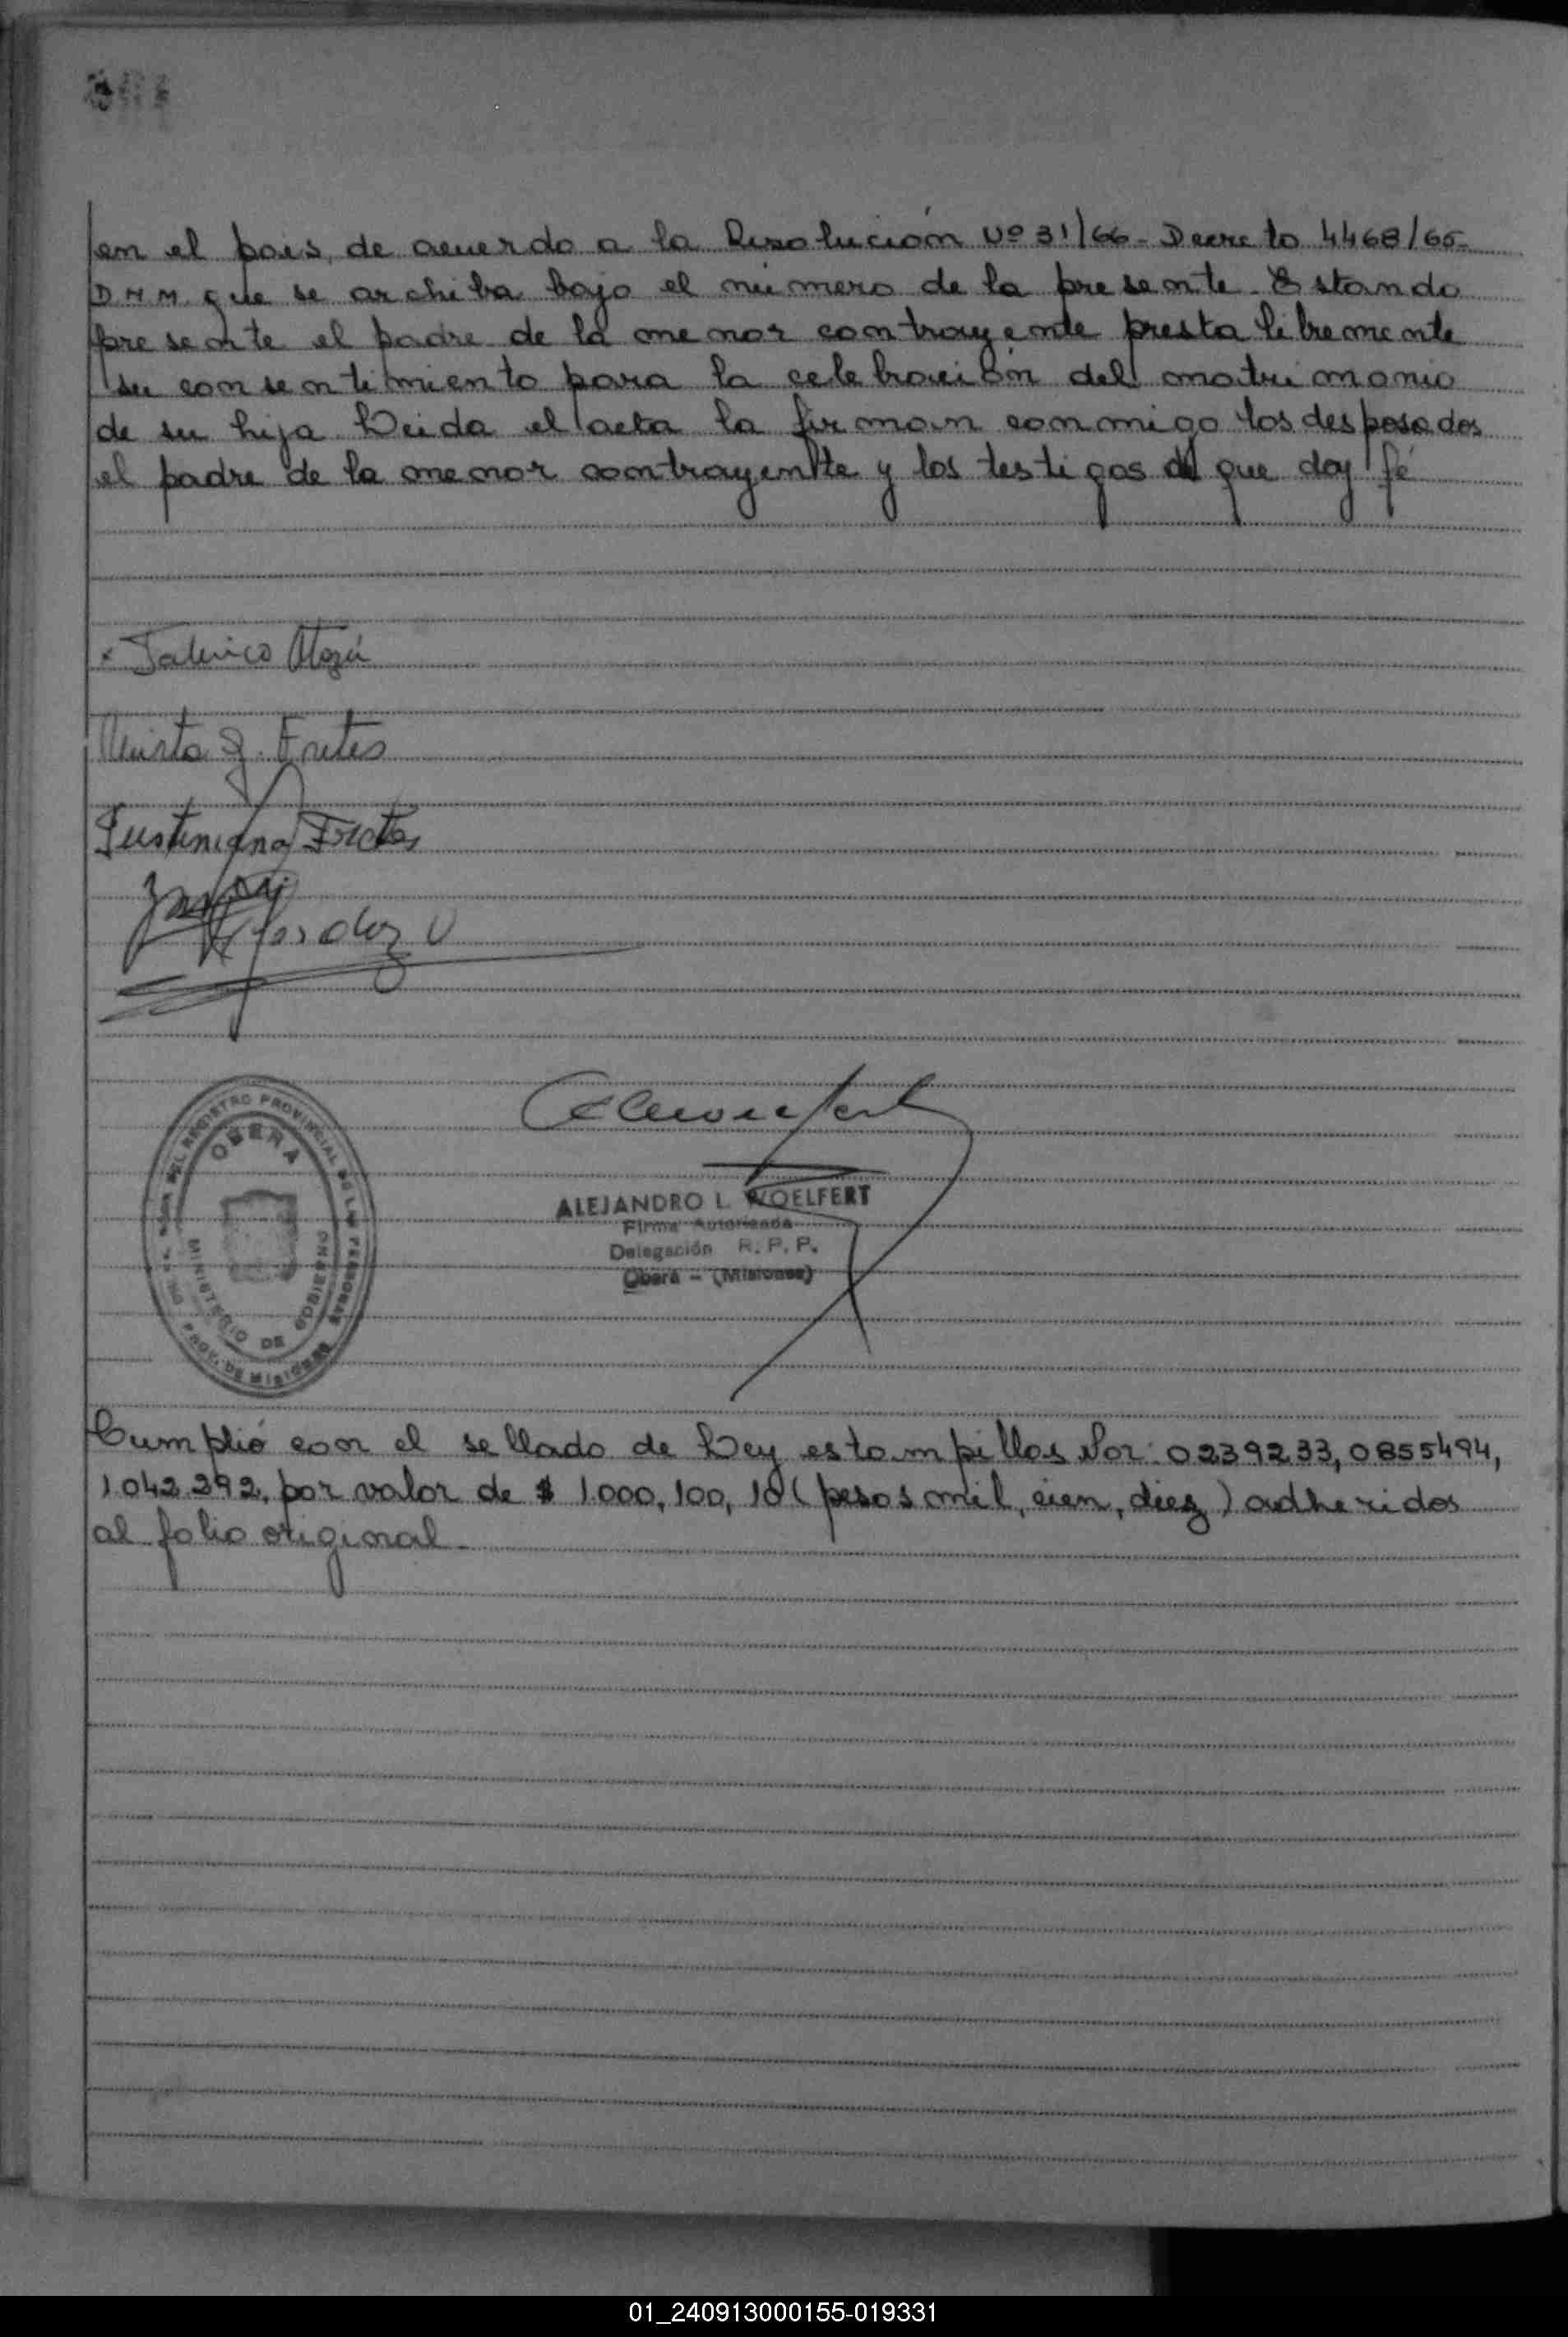 en el pais, de acuerdo a la Resolución Nº 31/66 - Decreto 4468/65 -
D N M que se archiba bajo el número de la presente - Estando
presente el padre de la menor contrayente presta libremente
su consentimiento para la celebración del matrimonio
de su hija Leida el acta la firman conmigo los desposados
el padre de la menor contrayente y los testigos de que doy fé
Mirta J. Fretes
Justiniano Fretes
OBERA
REGISTRO PROVINCIAL DE LAS PERSONAS
MINISTERIO DE GOBIERNO
PROV. DE MISIONES
ALEJANDRO L. WOELFERT
Firma Autorizada
Delegación R. P. P.
Oberá - (Misiones)
Cumplió con el sellado de Ley estampillas Nos: 0239233, 0855494,
1042292, por valor de $ 1.000, 100, 10 (pesos mil, cien, diez) adheridos
al folio original -
01_240913000155-019331